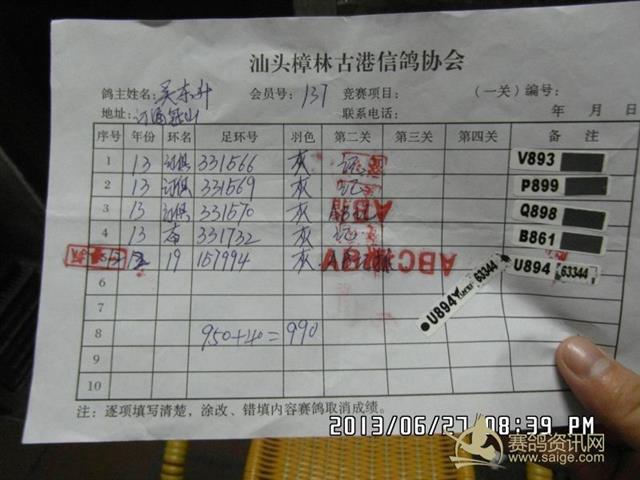 汕头樟林古港信鸽协会
鸽主姓名: 吴东升 会员号: 137 竞赛项目: （一关）编号:
地址: 冠山 联系电话: 年 月 日
序号 年份 环名 足环号 羽色 第二关 第三关 第四关 备 注
1 13 331566 灰 V893
2 13 331569 灰 P899
3 13 331570 灰 Q898
4 13 331732 灰 B861
5 19 157994 灰 U894 63344
6 U894
7
8 950+40=990
9
10
注: 逐项填写清楚，涂改、错填内容赛鸽取消成绩。
2013/06/27 08:39 PM
赛鸽资讯网
www.saige.com